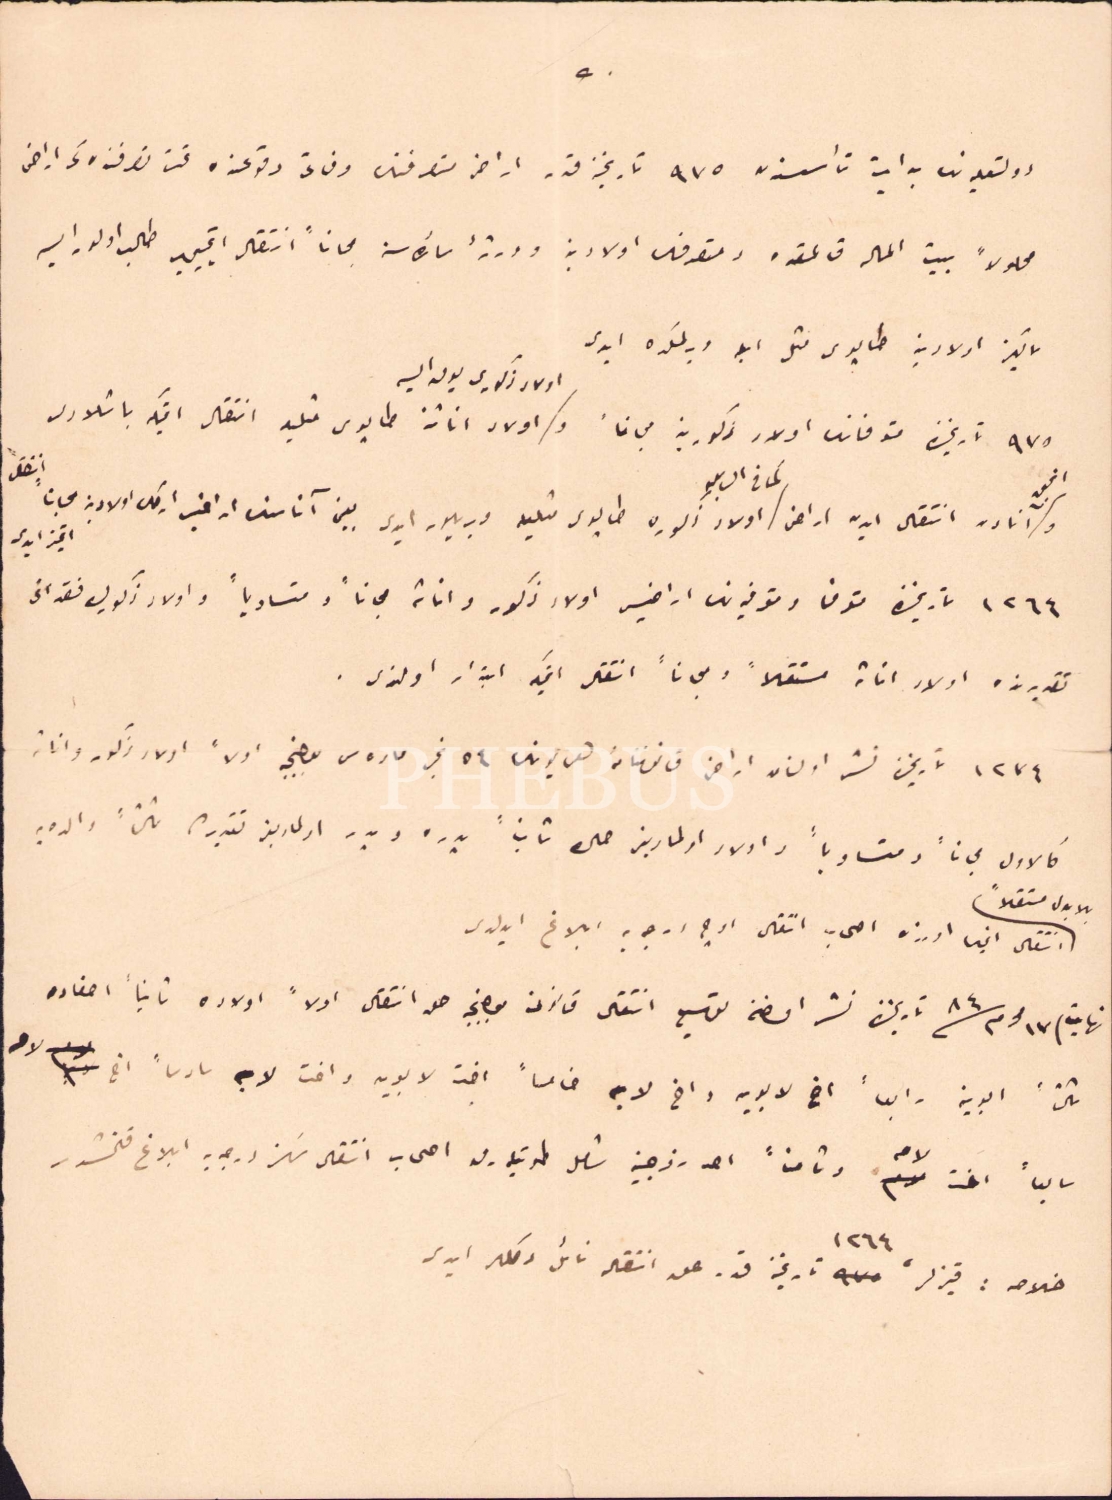 دولتعلیه‌نك بدایت تأسسندن ٩٧٥ تاریخنه قدر اراضی متصرفنك وفاتی وقوعنده تحت تصرفنده‌كی اراضی
محلولاً بیت الماله قالمقده و متصرفك اولادینه و ورثهٔ سائره‌سنه مجاناً انتقال ایتمیوب طالب اولور ایسه
یالكز اولادینه طاپوی مثل ایله ویرلمكده ایدی
اولاد ذكوری یوق ایسه
٩٧٥ تاریخنده متوفانك اولاد ذكورینه مجاناً و اولاد اناثنه طاپوی مثلیله انتقال ایتمكه باشلادی
انجق
كما فی السابق
و آنادن انتقال ایدن اراضی اولاد ذكوره طاپوی مثلیله ویریلور ایدی یعنی آناسنك اراضیسی اركك اولادینه مجاناً انتقال
ایتمز ایدی
١٢٦٤ تاریخنده متوفا و متوفیه‌نك اراضیسی اولاد ذكور و اناثه مجاناً و متساویاً و اولاد ذكورك فقدانی
تقدیرنده اولاد اناثه مستقلاً و مجاناً انتقال ایتمكه ابتدار اولندی .
١٢٧٤ تاریخنده نشر اولنان اراضی قانوننامه همایوننك ٥٤ نجی ماده‌سی موجبنجه اولاً اولاد ذكور و اناثه
كالاول مجاناً و متساویاً و اولاد اولمدیغی حالده ثانیاً پدره و پدر اولمدیغی تقدیرده ثالثاً والده‌یه
بلابدل مستقلاً
انتقال ایتمك اوزره اصحاب انتقال اوچ درجه‌یه ابلاغ ایدلدی
نهایت ١٧ محرم ٨٤ تاریخنده نشر اولنان توسیع انتقال قانونی موجبنجه حق انتقال اولاً اولاده ثانیاً احفاده
ثالثاً ابوینه رابعاً اخ لابوین و اخ لاب خامساً اخت لابوین و اخت لاب سادساً اخ لام
سابعاً اخت لام و ثامناً احد زوجینه شامل طوتیله‌رق اصحاب انتقال سكز درجه‌یه ابلاغ قلنمشدر
١٢٦٤
خلاصه : قیزلر ٩٧٥ تاریخنه قدر حق انتقاله نائل دكللر ایدی
PHEBUS